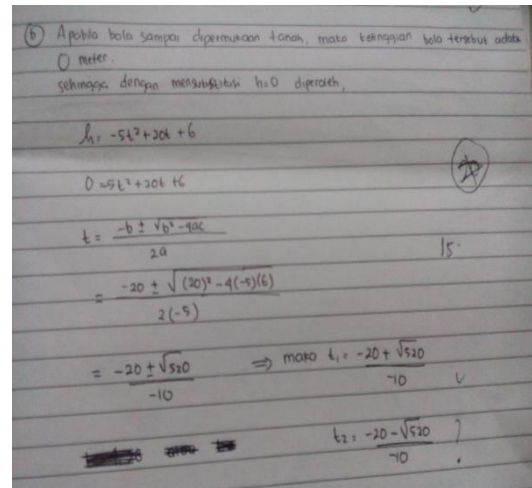 (b) Apabila bola sampai dipermukaan tanah, maka ketinggian bola tersebut adalah
0 meter.
sehingga dengan mensubstitusi h=0 diperoleh,
h = -5t² + 20t + 6
0 = 5t² + 20t + 6
t = (-b ± √b² - 4ac) / 2a
15.
= (-20 ± √(20)² - 4(-5)(6)) / 2(-5)
= (-20 ± √520) / -10 ⇒ maka t₁ = (-20 + √520) / -10
t₂ = (-20 - √520) / -10 ?